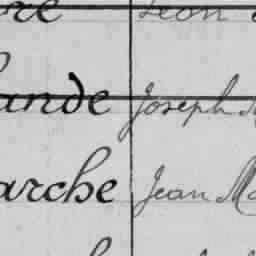 re Leon
ande Joseph
arche Jean Ma